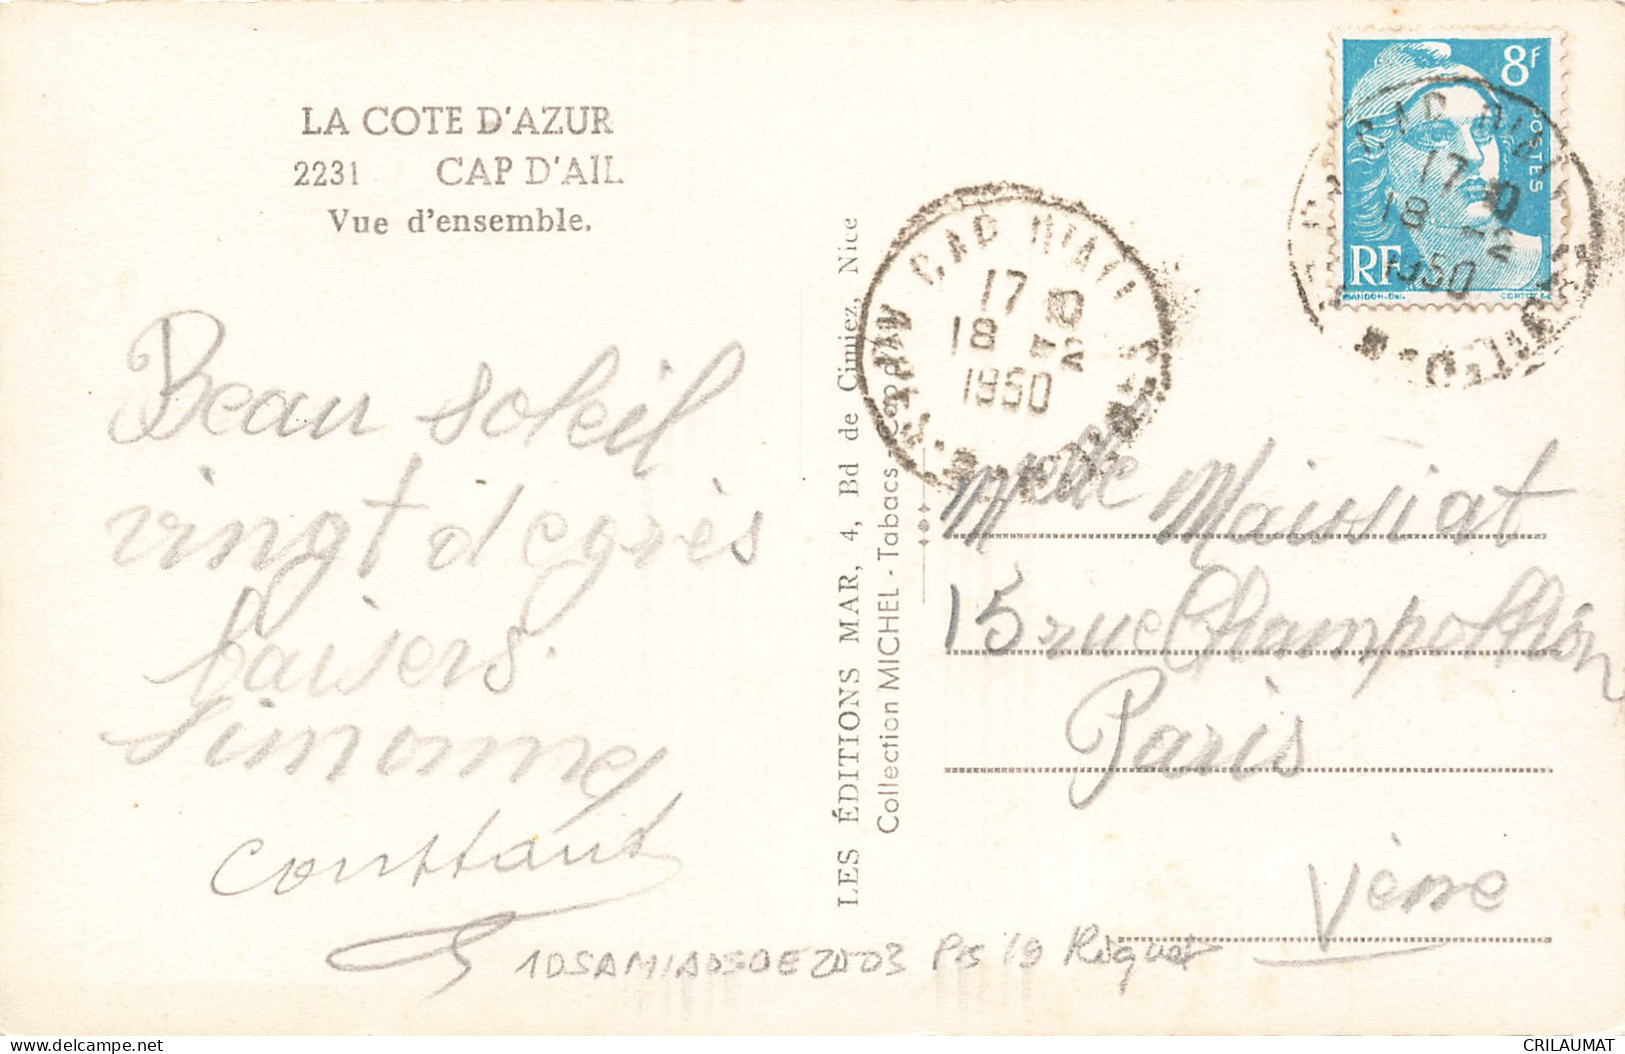 LA COTE D'AZUR
2231 CAP D'AIL
Vue d'ensemble.
Beau soleil
vingt degrès
baisers.
Simonne
Constant
LES ÉDITIONS MAR, 4, Bd de Cimiez, Nice
Collection MICHEL - Tabacs -
8F
POSTES
RF
CAP D'AIL
17
18
1950
CAP D'AIL
17
18
1950
Melle Maissiat
15 rue Champollion
Paris
Vème
CRILAUMAT
delcampe.net